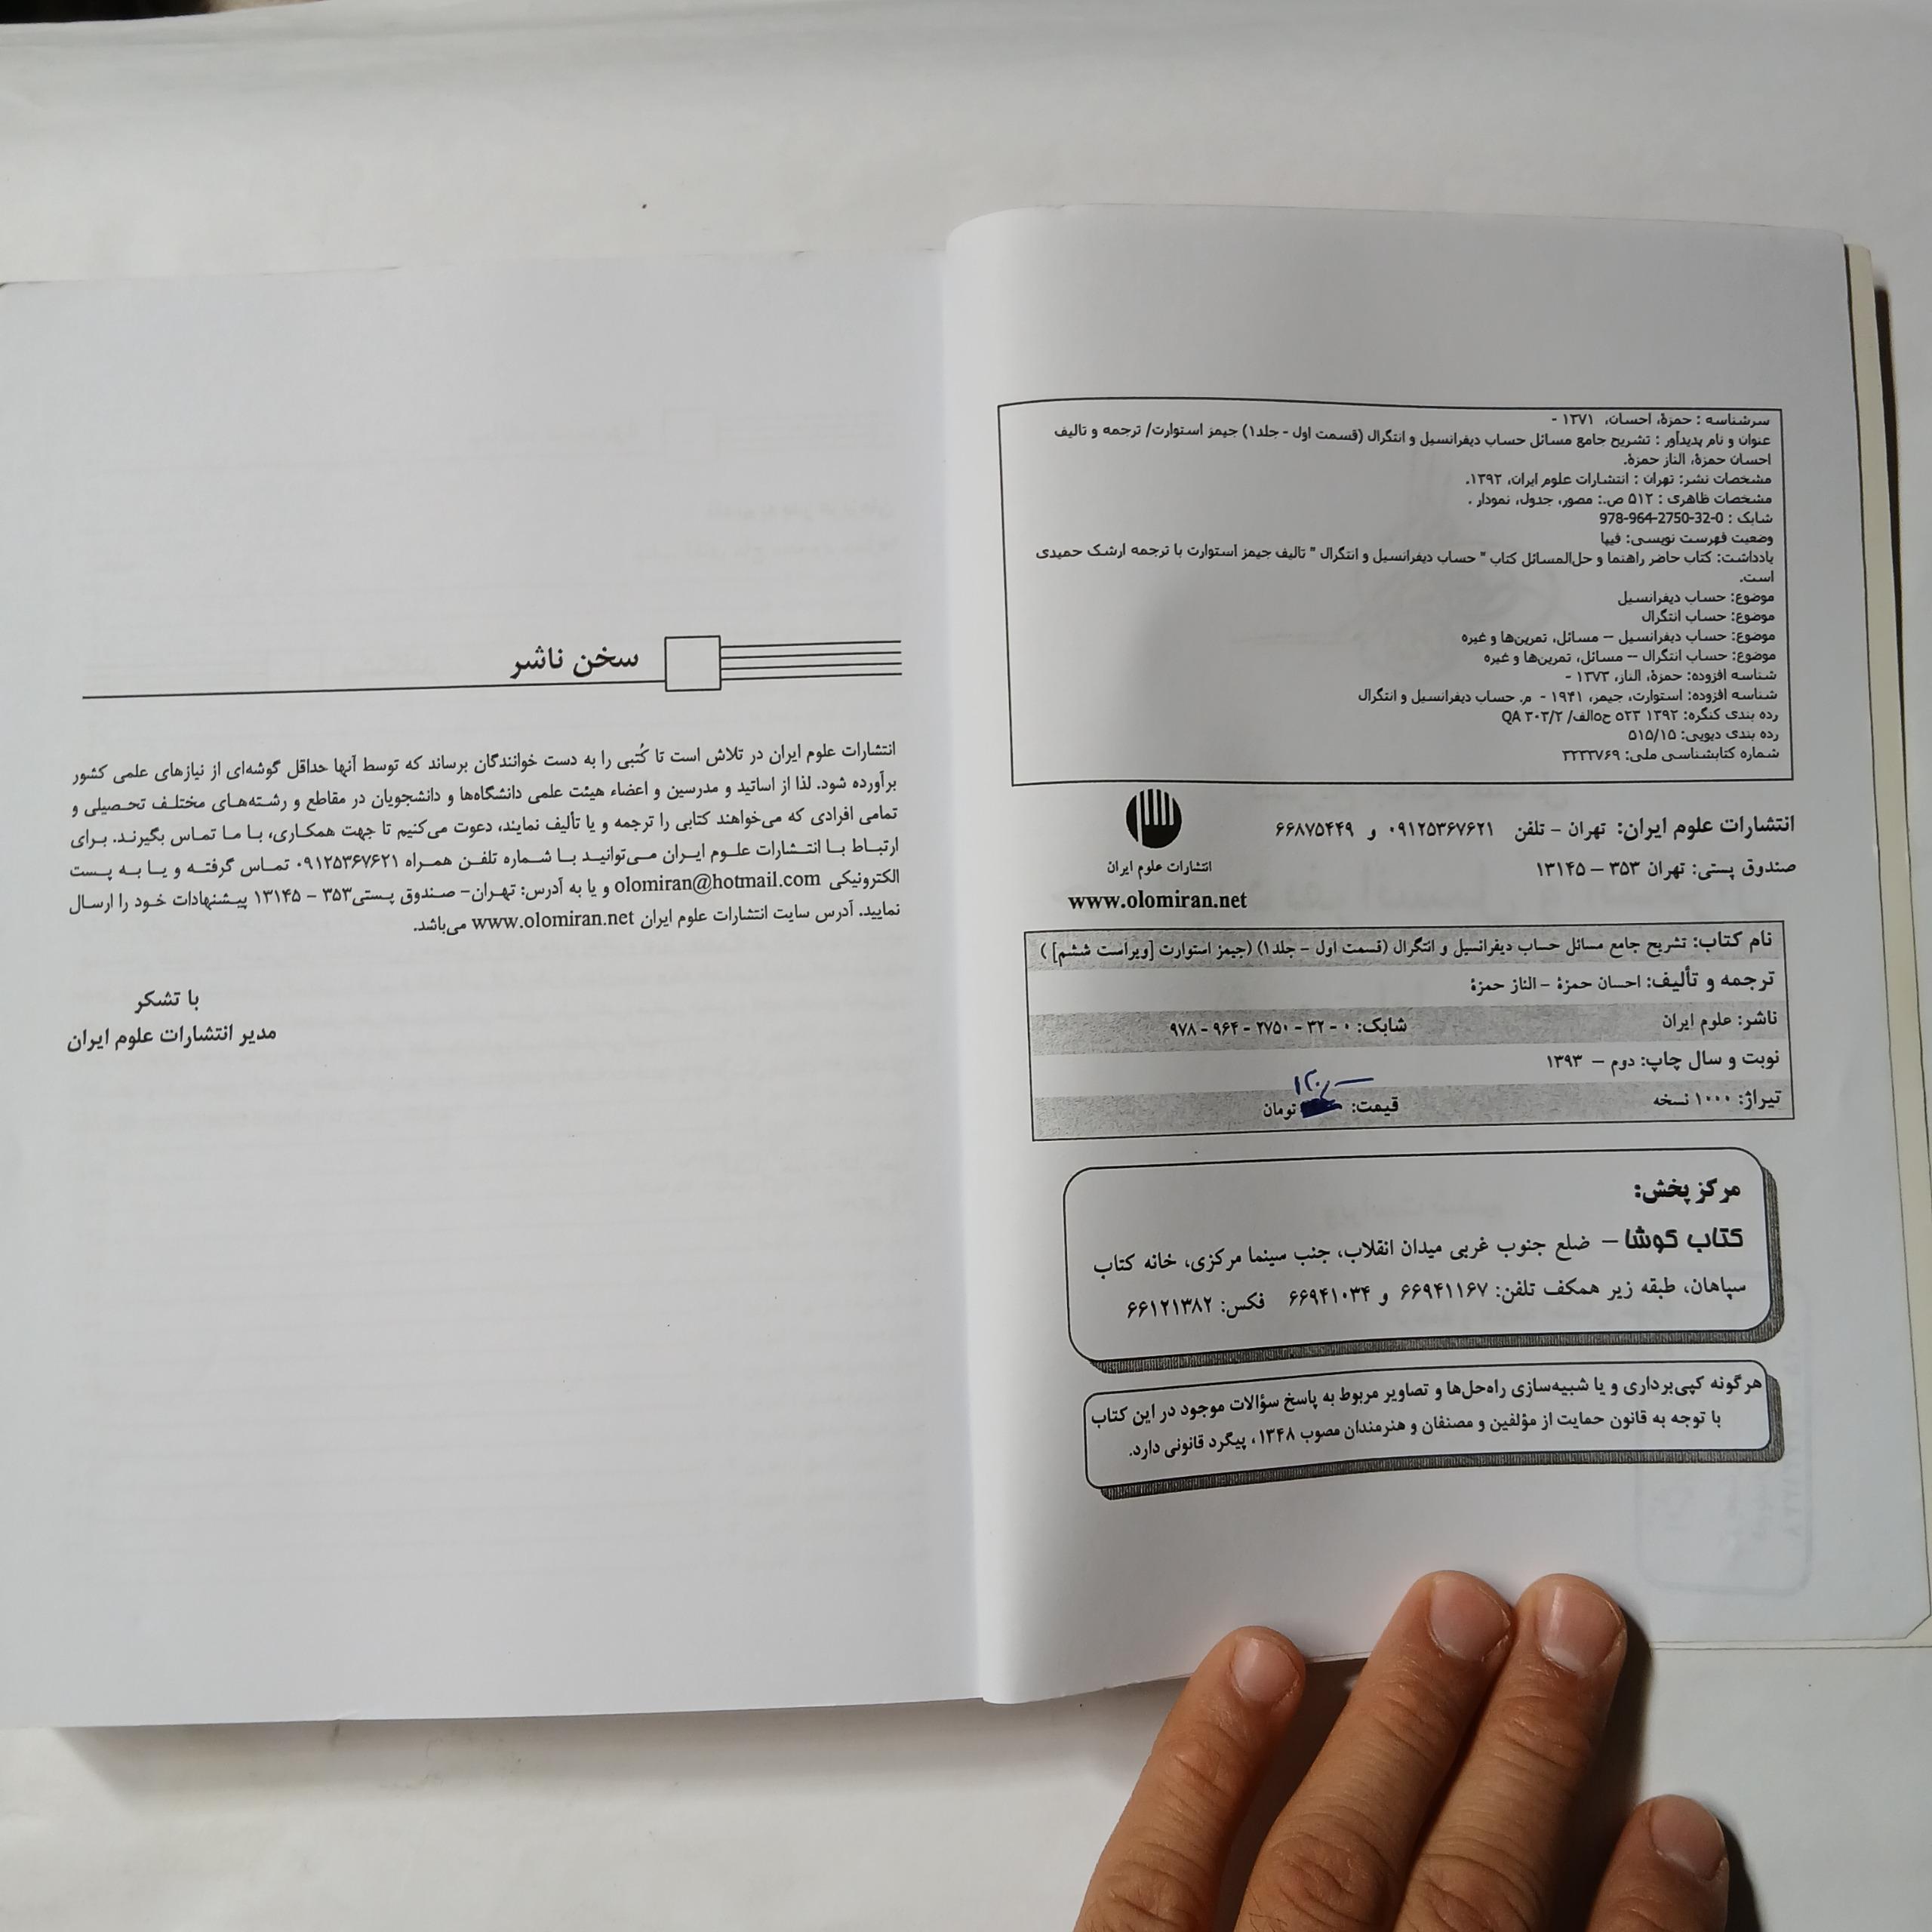 سرشناسه : حمزهٔ، احسان، ۱۳۷۱ -
عنوان و نام پدیدآور : تشریح جامع مسائل حساب دیفرانسیل و انتگرال (قسمت اول - جلد۱) جیمز استوارت/ ترجمه و تالیف
احسان حمزهٔ، الناز حمزهٔ.
مشخصات نشر: تهران : انتشارات علوم ایران، ۱۳۹۲.
مشخصات ظاهری : ۵۱۲ ص.: مصور، جدول، نمودار .
شابک : 978-964-2750-32-0
وضعیت فهرست نویسی: فیپا
یادداشت: کتاب حاضر راهنما و حل‌المسائل کتاب " حساب دیفرانسیل و انتگرال " تالیف جیمز استوارت با ترجمه ارشک حمیدی
است.
موضوع: حساب دیفرانسیل
موضوع: حساب انتگرال
موضوع: حساب دیفرانسیل -- مسائل، تمرین‌ها و غیره
موضوع: حساب انتگرال -- مسائل، تمرین‌ها و غیره
شناسه افزوده: حمزهٔ، الناز، ۱۳۷۳ -
شناسه افزوده: استوارت، جیمز، ۱۹۴۱ - م. حساب دیفرانسیل و انتگرال
رده بندی کنگره: ۱۳۹۲ ۵۲۳ ح۵الف/ QA ۳۰۳/۲
رده بندی دیویی: ۵۱۵/۱۵
شماره کتابشناسی ملی: ۳۲۳۳۷۶۹
انتشارات علوم ایران: تهران – تلفن ۰۹۱۲۵۳۶۷۶۲۱ و ۶۶۸۷۵۴۴۹
صندوق پستی: تهران ۳۵۳ – ۱۳۱۴۵
انتشارات علوم ایران
www.olomiran.net
نام کتاب: تشریح جامع مسائل حساب دیفرانسیل و انتگرال (قسمت اول – جلد۱) (جیمز استوارت [ویراست ششم] )
ترجمه و تألیف: احسان حمزهٔ – الناز حمزهٔ
ناشر: علوم ایران شابک: ۰ - ۳۲ - ۲۷۵۰ - ۹۶۴ - ۹۷۸
نوبت و سال چاپ: دوم – ۱۳۹۳
تیراژ: ۱۰۰۰ نسخه قیمت: تومان
مرکز پخش:
کتاب کوشا – ضلع جنوب غربی میدان انقلاب، جنب سینما مرکزی، خانه کتاب
سپاهان، طبقه زیر همکف تلفن: ۶۶۹۴۱۱۶۷ و ۶۶۹۴۱۰۳۴ فکس: ۶۶۱۲۱۳۸۲
هرگونه کپی‌برداری و یا شبیه‌سازی راه‌حل‌ها و تصاویر مربوط به پاسخ سؤالات موجود در این کتاب
با توجه به قانون حمایت از مؤلفین و مصنفان و هنرمندان مصوب ۱۳۴۸، پیگرد قانونی دارد.
سخن ناشر
انتشارات علوم ایران در تلاش است تا کُتبی را به دست خوانندگان برساند که توسط آنها حداقل گوشه‌ای از نیازهای علمی کشور
برآورده شود. لذا از اساتید و مدرسین و اعضاء هیئت علمی دانشگاه‌ها و دانشجویان در مقاطع و رشته‌های مختلف تحصیلی و
تمامی افرادی که می‌خواهند کتابی را ترجمه و یا تألیف نمایند، دعوت می‌کنیم تا جهت همکاری، با ما تماس بگیرند. برای
ارتباط با انتشارات علوم ایران می‌توانید با شماره تلفن همراه ۰۹۱۲۵۳۶۷۶۲۱ تماس گرفته و یا به پست
الکترونیکی olomiran@hotmail.com و یا به آدرس: تهران- صندوق پستی۳۵۳ – ۱۳۱۴۵ پیشنهادات خود را ارسال
نمایید. آدرس سایت انتشارات علوم ایران www.olomiran.net می‌باشد.
با تشکر
مدیر انتشارات علوم ایران